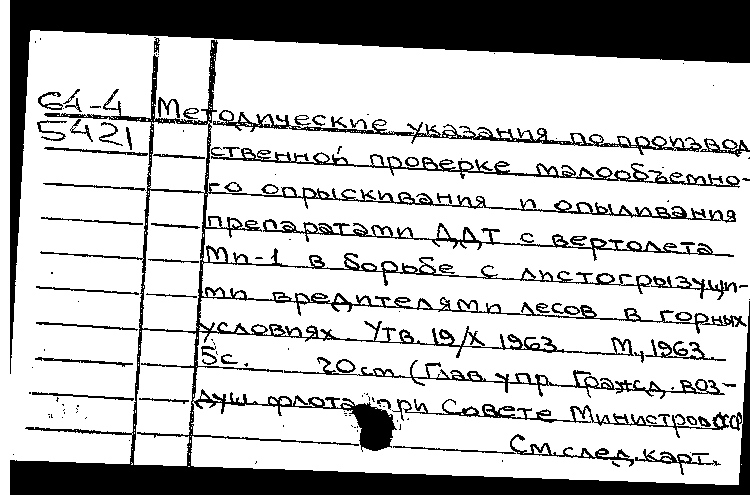 64-4 Методические указания по производ
5421
ственной проверке малообъемно-
го опрыскивания и опыливания
препаратами ДДТ с вертолета
Ми-1 в борьбе с листогрызущи-
ми вредителями лесов в горных
условиях. Утв. 19/X 1963. М., 1963.
5с. 20см. (Глав. упр. Гражд. воз-
душ. флота при Совете Министров СССР
См. след. карт.